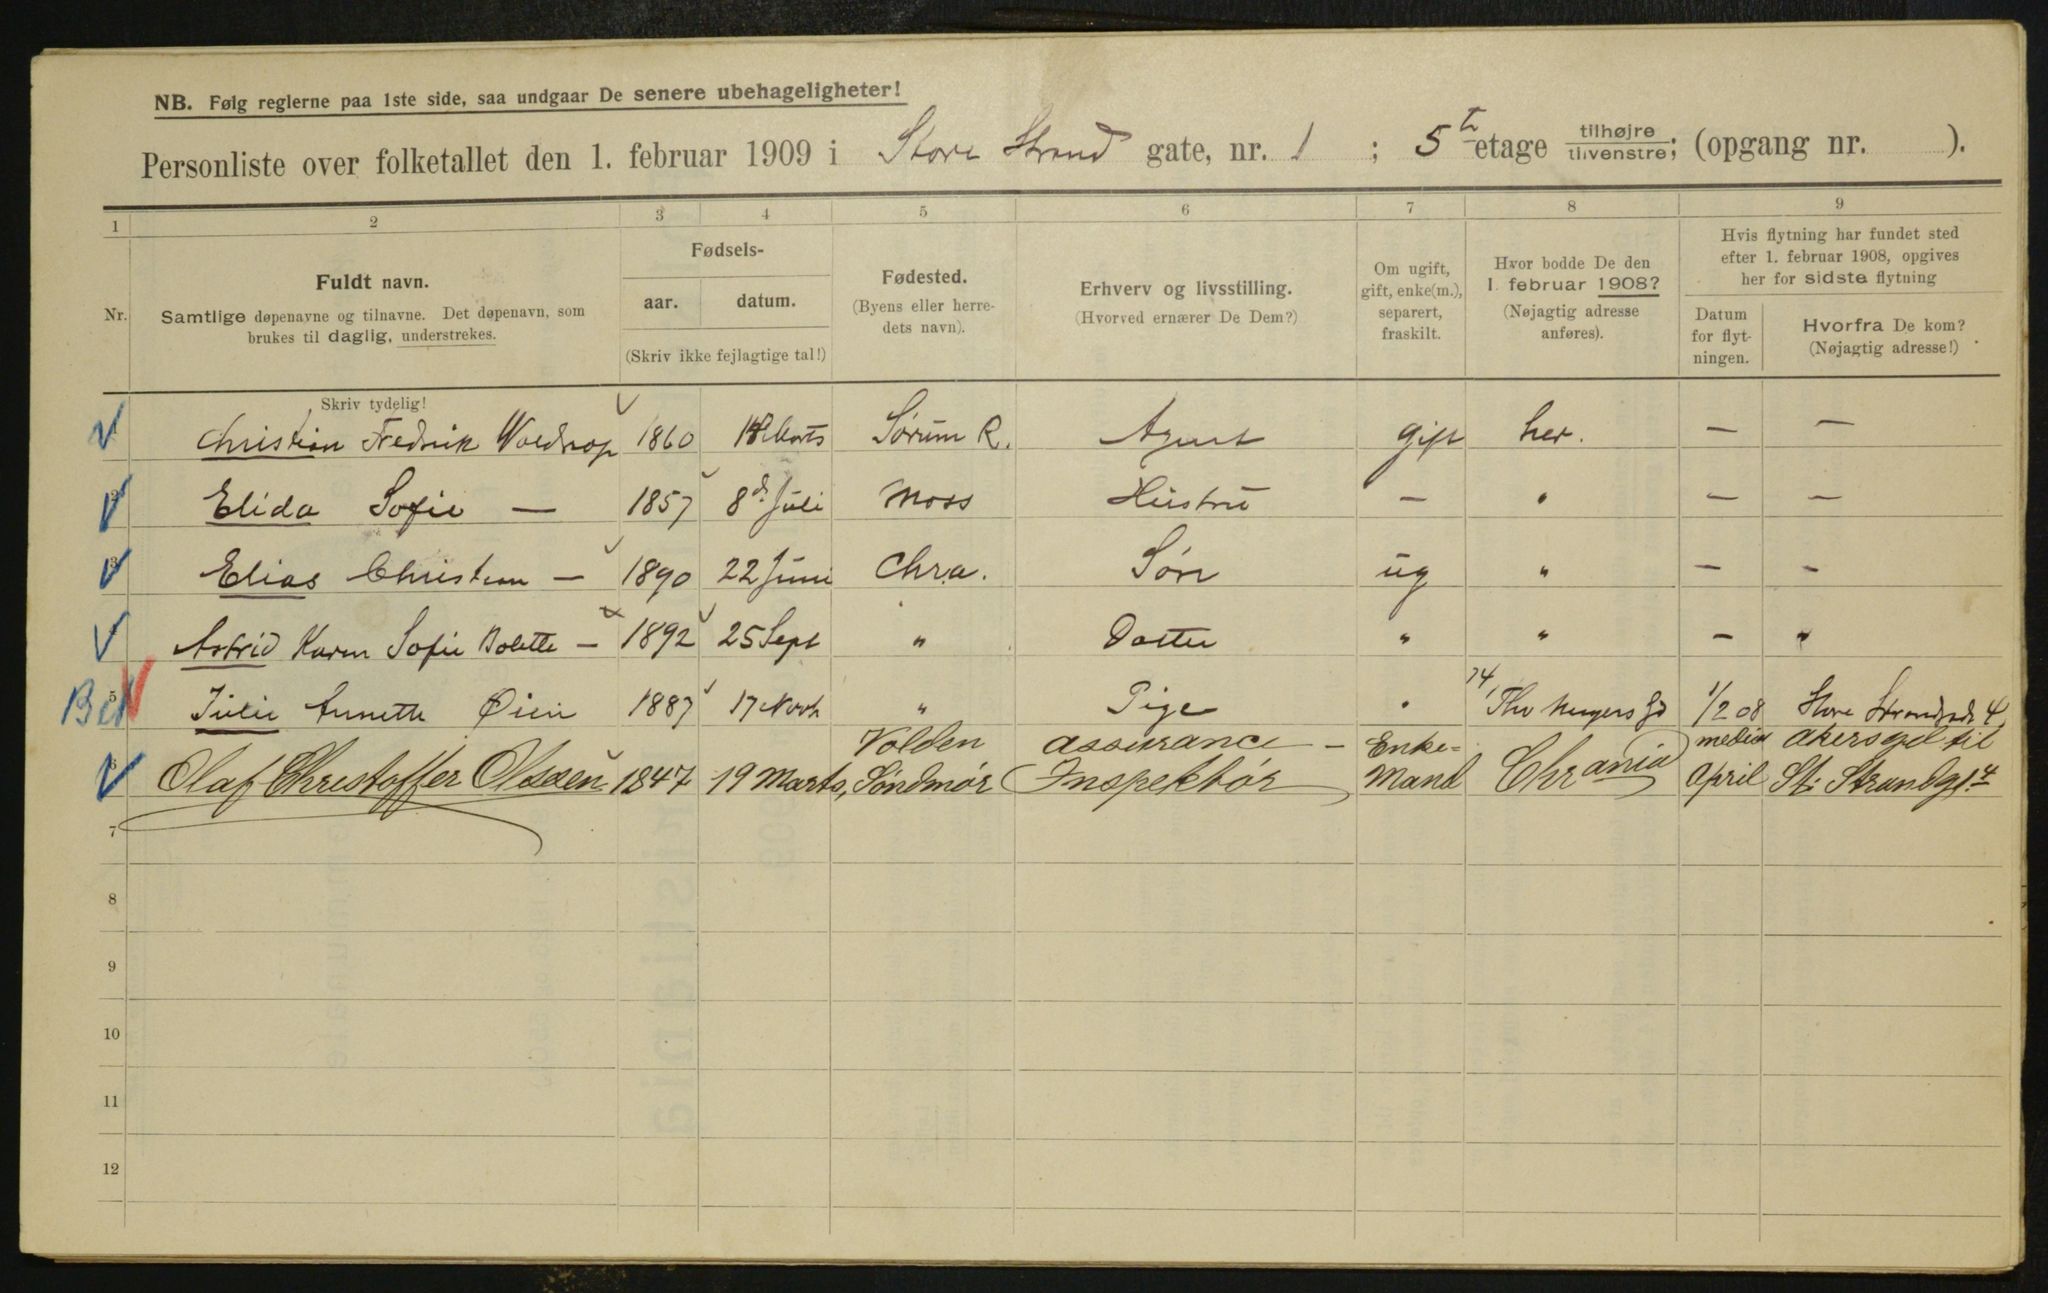 NB. Følg reglerne paa 1ste side, saa undgaar De senere ubehageligheter!
Personliste over folketallet den 1. februar 1909 i Store Strand gate, nr. 1 ; 5te etage tilhøjre tilvenstre; (opgang nr. ).
1 2 3 4 5 6 7 8 9
Nr.
Fuldt navn.
Samtlige døpenavne og tilnavne. Det døpenavn, som
brukes til daglig, understrekes.
Skriv tydelig!
Fødsels-
aar. datum.
(Skriv ikke fejlagtige tal!)
Fødested.
(Byens eller herre-
dets navn).
Erhverv og livsstilling.
(Hvorved ernærer De Dem?)
Om ugift,
gift, enke(m.),
separert,
fraskilt.
Hvor bodde De den
1. februar 1908?
(Nøjagtig adresse
anføres).
Hvis flytning har fundet sted
efter 1. februar 1908, opgives
her for sidste flytning
Datum
for flyt-
ningen.
Hvorfra De kom?
(Nøjagtig adresse!)
Christian Fredrik Woldrop 1860 Marts Sørum R. Agent gift her. — —
2 Elida Sofie — 1857 8d Juli Moss Hustru — " — —
3 Elias Christian — 1890 22 Juni Chra. Søn ug " — —
Astrid Karen Sofie Bolette — 1892 25 Sept " Datter " " — "
5 Julie Annette Øien 1887 17 Novb " Pige " 74, Thv Meyers gd 1/2 08 Store Strandgade 4,
6 Olaf Christoffer Olssen 1847 19 Marts, Volden Søndmør assurance - Inspektør Enke= Mand Chrania medio April akersgd til St: Strandgd. 4
7
8
9
10
11
12